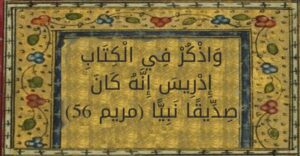 وَاذْكُرْ فِي الْكِتَابِ
إِدْرِيسَ إِنَّهُ كَانَ
صِدِّيقًا نَبِيًّا (مريم 56)